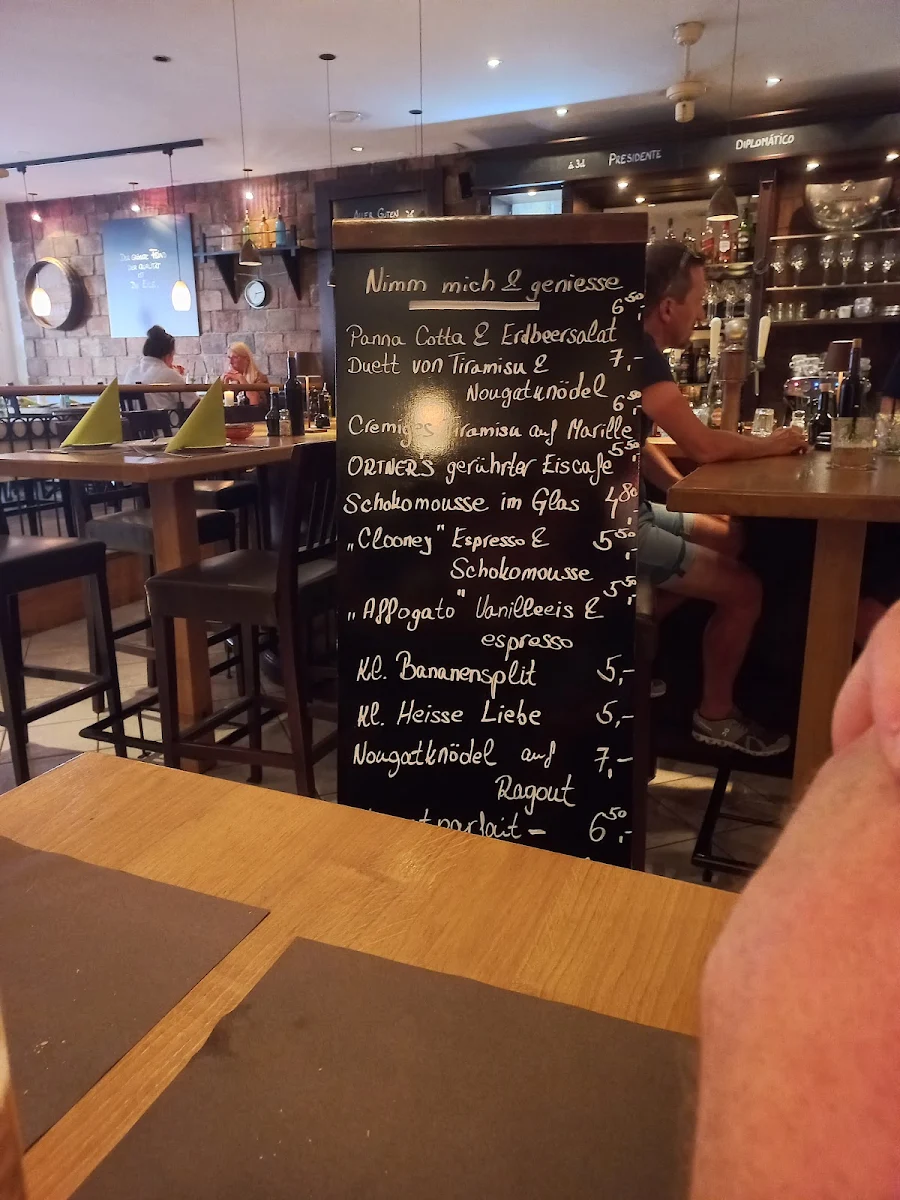 PRESIDENTE
DIPLOMÁTICO
Nimm mich & geniesse
Panna Cotta & Erdbeersalat 6⁵⁰,-
Duett von Tiramisu & 7,-
Nougatknödel
Cremiges Tiramisu auf Marille 6⁵⁰,-
ORTNER'S gerührter Eiscafe 5⁵⁰,-
Schokomousse im Glas 4⁸⁰,-
"Clooney" Espresso & 5⁵⁰,-
Schokomousse
"Affogato" Vanilleeis & 5⁵⁰,-
espresso
Kl. Bananensplit 5,-
Kl. Heisse Liebe 5,-
Nougatknödel auf 7,-
Ragout
parfait - 6⁵⁰,-